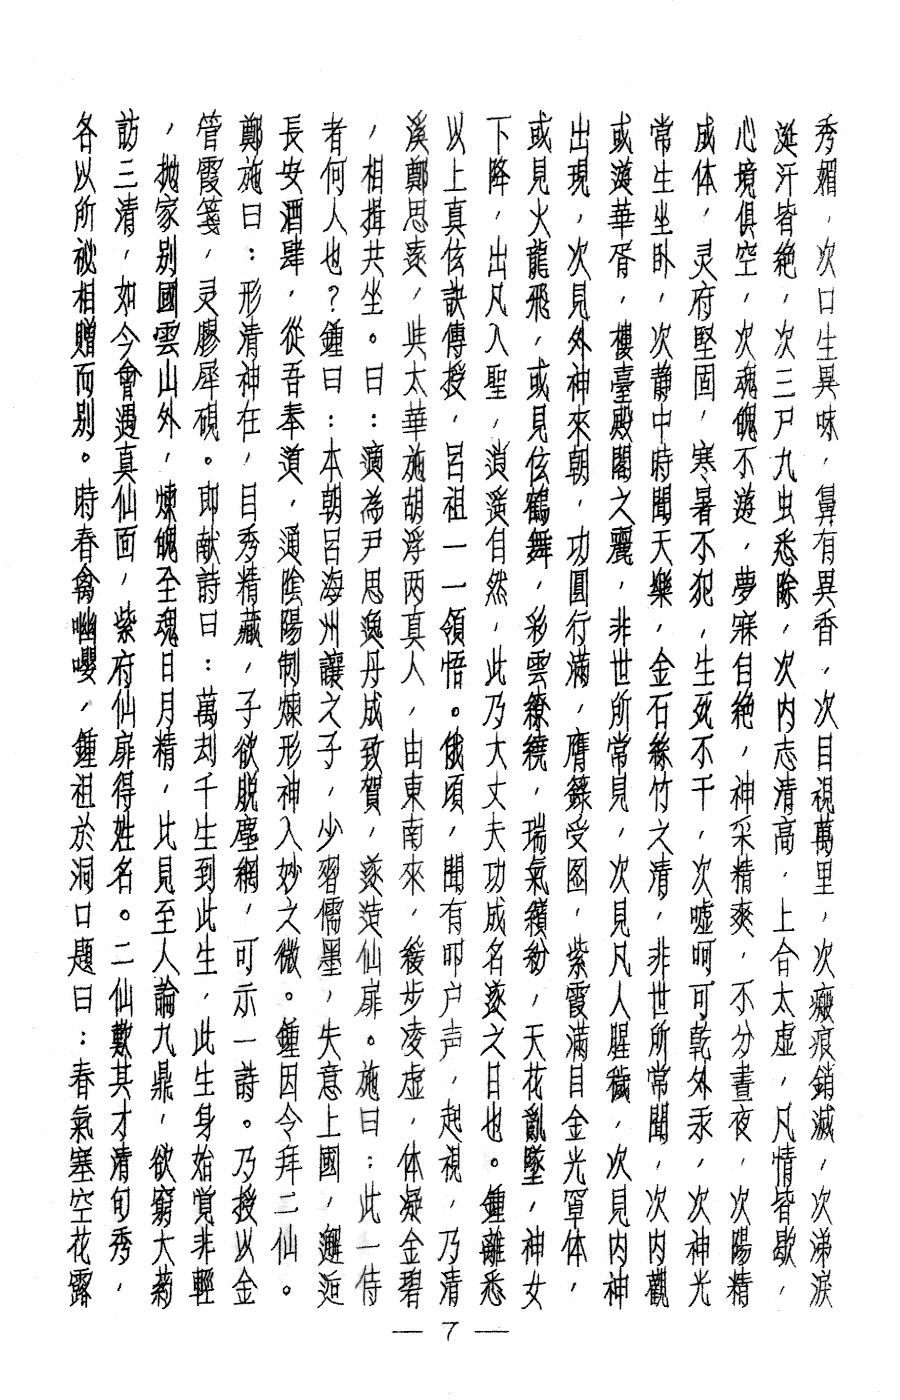 秀媚，次口生異味，鼻有異香，次目視萬里，次瘢痕銷滅，次涕淚
涎汗皆絶，次三尸九虫悉除，次内志清高，上合太虚，凡情皆歇，
心境俱空，次魂魄不遊，夢寐自絶，神采精爽，不分晝夜，次陽精
成体，灵府堅固，寒暑不犯，生死不干，次嘘呵可乾外汞，次神光
常生坐卧，次静中時聞天樂，金石絲竹之清，非世所常聞，次内觀
或遊華胥，樓臺殿閣之麗，非世所常見，次見凡人腥穢，次見内神
出現，次見外神來朝，功圓行滿，膺籙受图，紫霞滿目金光罩体，
或見火龍飛，或見伭鶴舞，彩雲繚繞，瑞氣繽紛，天花亂墜，神女
下降，出凡入聖，逍遥自然，此乃大丈夫功成名遂之日也。鍾離悉
以上真伭訣傳授，呂祖一一領悟。俄頃，聞有叩户声，起視，乃清
溪鄭思遠，與太華施胡浮两真人，由東南來，緩步凌虚，体凝金碧
，相揖共坐。曰：適為尹思逸丹成致賀，遂造仙扉。施曰：此一侍
者何人也？鍾曰：本朝呂海州讓之子，少習儒墨，失意上國，邂逅
長安酒肆，從吾奉道，通陰陽制煉形神入妙之微。鍾因令拜二仙。
鄭施曰：形清神在，目秀精藏，子欲脱塵網，可示一詩。乃授以金
管霞箋，灵膠犀硯。即献詩曰：萬刦千生到此生，此生身始覚非輕
，抛家别國雲山外，煉魄全魂日月精，比見至人論九鼎，欲窮大葯
訪三清，如今會遇真仙面，紫府仙扉得姓名。二仙歎其才清句秀，
各以所祕相贈而别。時春禽嚶，鍾祖於洞口題曰：春氣塞空花露
— 7 —